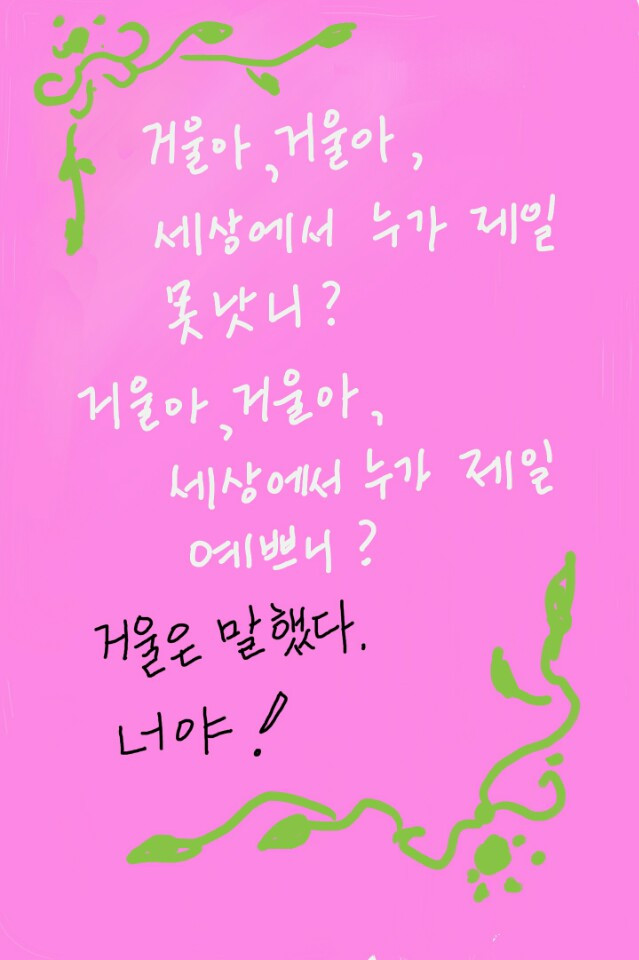 거울아, 거울아,
세상에서 누가 제일
못낫니?
거울아, 거울아,
세상에서 누가 제일
예쁘니?
거울은 말했다.
너야!